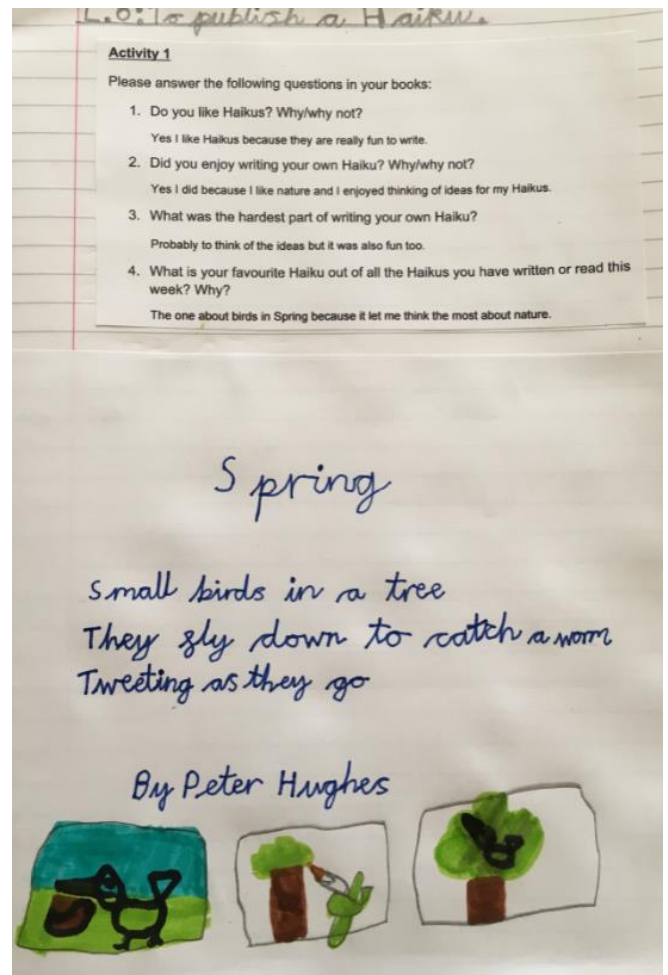 L.O: To publish a Haiku.
Activity 1
Please answer the following questions in your books:
1. Do you like Haikus? Why/why not?
Yes I like Haikus because they are really fun to write.
2. Did you enjoy writing your own Haiku? Why/why not?
Yes I did because I like nature and I enjoyed thinking of ideas for my Haikus.
3. What was the hardest part of writing your own Haiku?
Probably to think of the ideas but it was also fun too.
4. What is your favourite Haiku out of all the Haikus you have written or read this
week? Why?
The one about birds in Spring because it let me think the most about nature.
Spring
Small birds in a tree
They fly down to catch a worm
Tweeting as they go
By Peter Hughes